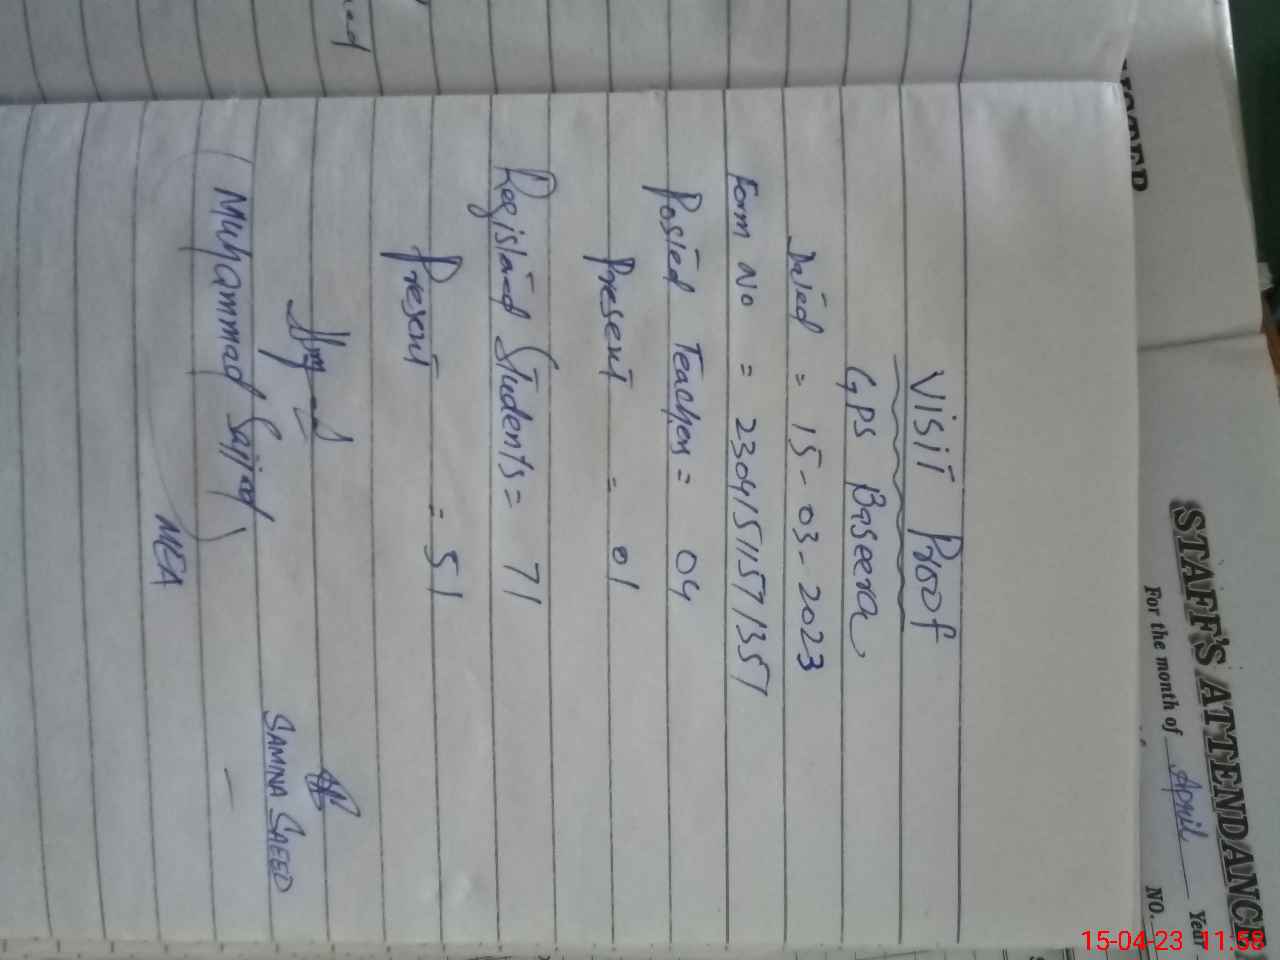 Visit Proof
GPS Baseera
Dated = 15-03-2023
Form No = 23041511571357
Posted Teachers = 04
Present = 01
Registered Students = 71
Present = 51
(Muhammad Sajjad)
MEA
SAMINA SAEED
STAFF'S ATTENDANCE
For the month of April Year
NO.
15-04-23 11:58